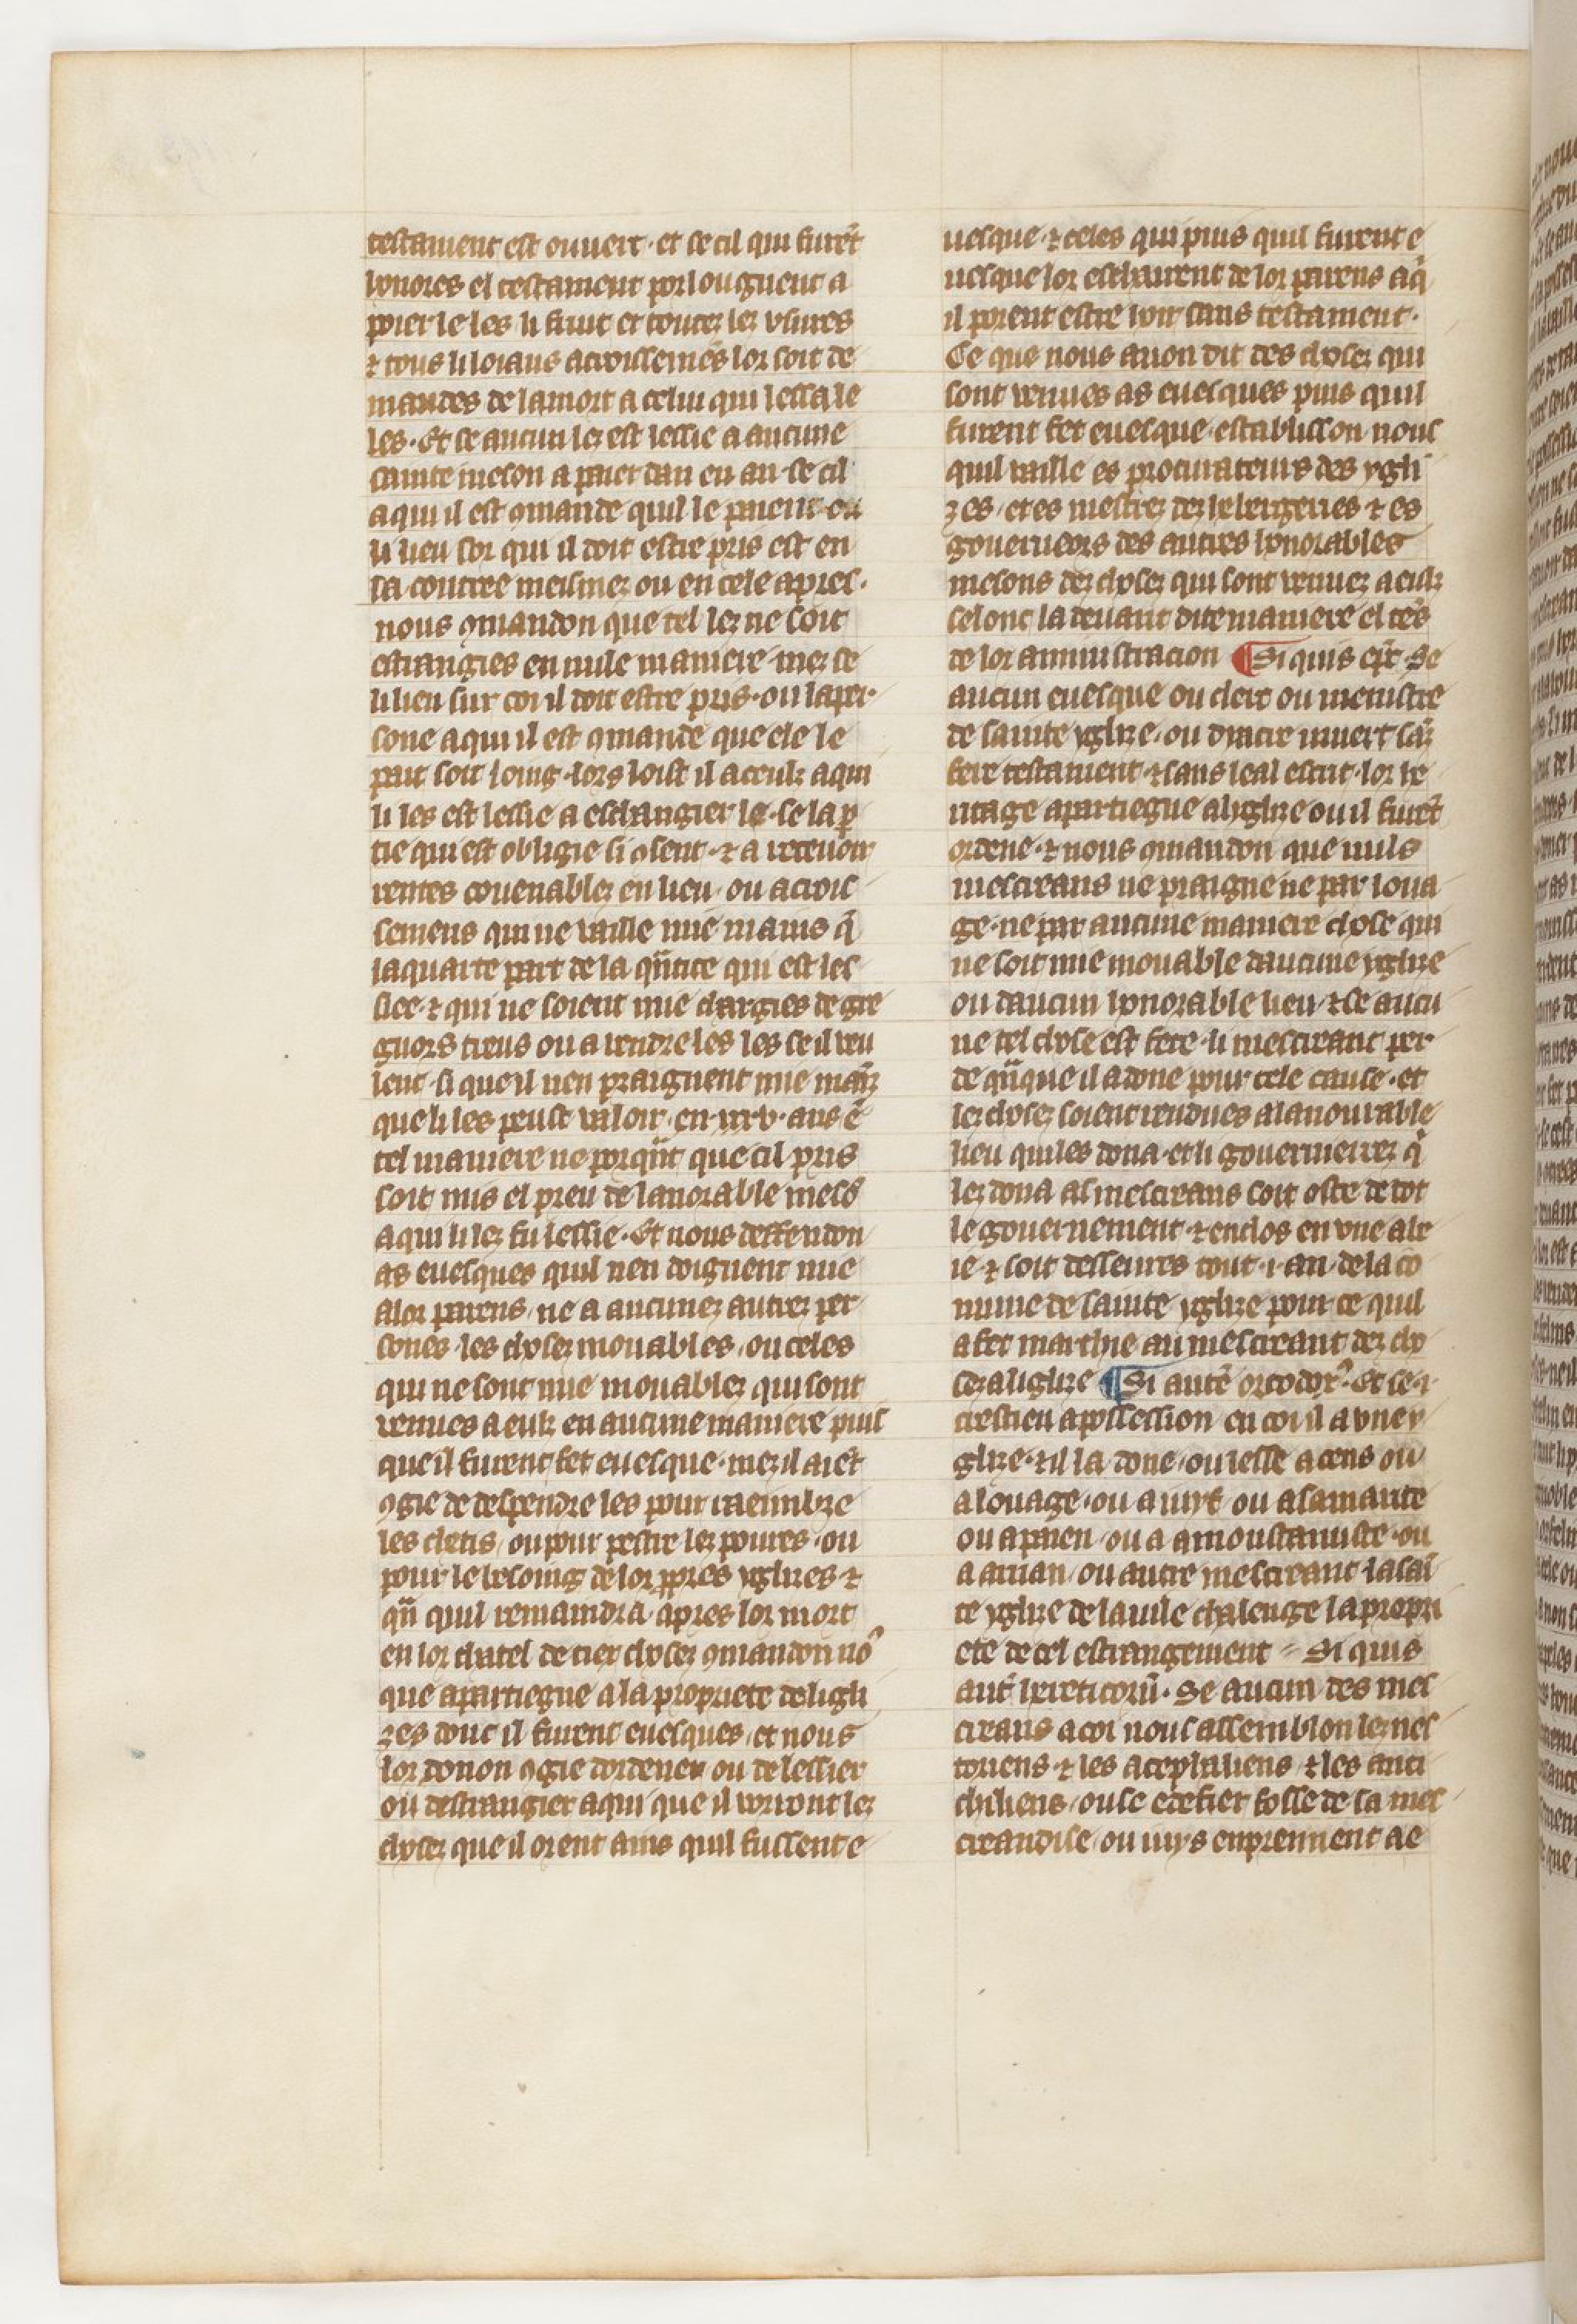 testament est ouuert · et se cil qui furẽt
honores el testament porlonguent a
poier le les li fruit et toutez lez vsures
⁊ tous li loiaus acroissemẽs lor soit de
mandes de la mort a celui qui lessa le
les · Et se aucun lez est lessie a aucune
sainte meson a paier dan en an · se cil
a qui il est ꝯmande quil le paient ou
li lieu sor qui il doit estre pris est en
sa contree meismez ou en cele apres ·
nous ꝯmandon que tel lez ne soit
estrangies en nule maniere mez se
li lieu sur coi il doit estre pris · ou la per
sone a qui il est ꝯmande que ele le
pait soit loing · lors loist il a ceulz a qui
li les est lessie a eschangier le · se la ꝑ
tie qui est obligie si ꝯsent · ⁊ a receuoir
rentes couenablez en lieu · ou acrois
semens qui ne vaille mie mains q̃
la quarte part de la qñtite qui est les
siee · ⁊ qui ne soient mie chargies de gre
gnors treus ou a rendre les les se il veu
lent · si que il nen praignent mie maīz
que li les peust valoir · en · xxv · ans ẽ
tel maniere ne porqũt que cil pris
soit mis el preu de lanorable mesõ
a qui li lez fu lessie · Et nous deffendon
as euesques quil nen doignent mie
a lor parens · ne a aucunez autrez per
sones · les chosez mouables · ou celes
qui ne sont mie mouablez qui sont
venues a eulz en aucune maniere puis
que il furent fet euesque · mez il aiẽt
ꝯgie de despendre les pour raembre
les chetis · ou pour pestre lez poures · ou
pour le besoing de lor ꝓpres yglizes ⁊
qñ quil remaindra apres lor mort
en lor chatel de tiex chosez ꝯmandon no᾿
que apartiegne a la propriete de ligli
zes dont il furent euesques · et nous
lor donon ꝯgie dordener ou de lessier
ou destrangier a qui que il vorront lez
chosez que il orent ains quil fussent e
uesque · ⁊ celes qui puis quil furent e
uesque lor escheurent de lor parens a q̃
il porent estre hoir sans testament ·
Ce que nous auon dit des chosez qui
sont venues as euesques puis quil
furent fet euesque · establisson nous
quil vaille es procurateurs des ygli
zes · et es mestrez dez hebergeries ⁊ es
gouerneors des autres honorables
mesons dez chosez qui sont venuez a eulz
selonc la deuant dite maniere el tẽs
de lor aministracion ¶ Si quis ep̃c · Se
aucun euesque ou clerc ou menistre
de sainte yglize · ou diacre muert sãz
fere testament · ⁊ sans leal escrit · lor he
ritage apartiegne a liglize ou il furẽt
ordene · ⁊ nous ꝯmandon que nuls
mescreans ne praigne ne par loua
ge · ne par aucune maniere chose qui
ne soit mie mouable daucune yglize
ou daucun honorable lieu · ⁊ se aucu
ne tel chose est fete · li mescreant per
de qñque il a done pour cele cause · et
lez chosez soient rendues a lanourable
lieu qui les dona · et li gouernerrez q̃
lez dona as mescreans soit oste de tot
le gouernement · ⁊ enclos en vne abe
ie · ⁊ soit desseures tout · i · an · de la co
mune de sainte yglize pour ce quil
a fet marchie au mescreant dez cho
sez a liglize ¶ Si autẽ ortodox᾿ · Et se · i ·
crestien a possession en coi il a vne y
glize · ⁊ il la done · ou lesse a cens ou
a louage · ou a iuyf · ou a samarite
ou a paien · ou a a moustaniste · ou
a arrian · ou autre mescreant la sãi
te yglize de la uile chalenge la propri
ete de cel estrangement = Si quis
aut̃ hereticorũ · Se aucun des mes
creans a coi nous assemblon lez nes
toriens · ⁊ les acephaliens ⁊ les euti
chiliens · ou se edefier fosse de sa mes
creandise · ou iuys enprennent ae